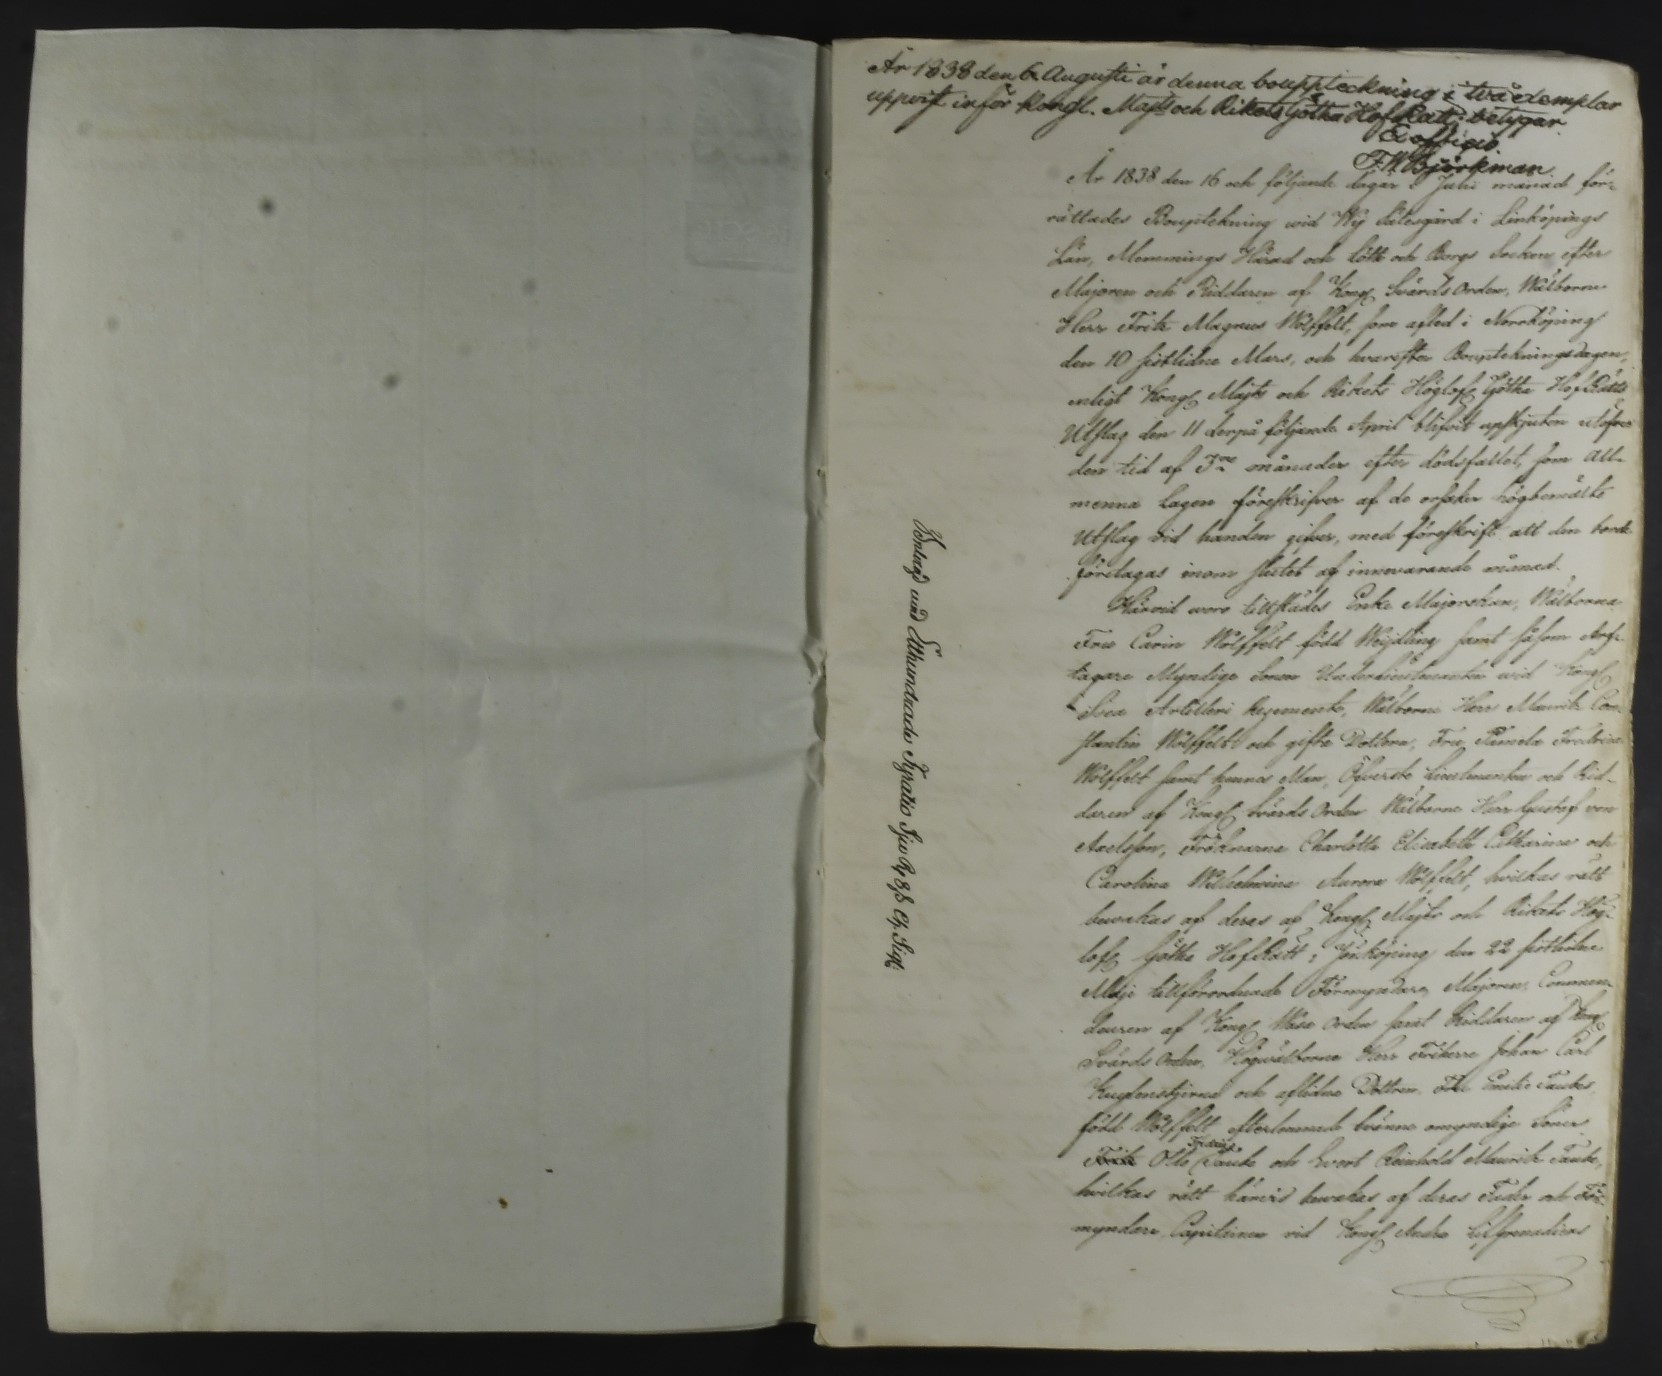 År 1838 den 6 Augusti är denna bouppteckning i två exemplar
uppvist inför Kongl. Majts och Rikets Götha HofRätt; betygar
Ex officio
F. W. Björkman
År 1838 den 16 och följande dagar i Julii månad för-
rättades Bouptekning wid Wij Sätesgård i Linköpings
Län, Memmings Härad och Löth och Borgs Socken, efter
Majoren och Riddaren af Kongl Svärds Orden, Wälborne
Herr Fritz Magnus Wolffelt, som afled i Norrköping
den 10 sistlidne Mars, och hvarefter Bouptekningsdagen,
enligt Kongl Majts och Rikets Höglofl Götha HofRätts
Utslag den 11 derpå följande April blifvit upskjuten utöfver
den tid af 3ne månader efter dödsfallet, som All-
menna Lagen föreskrifver af de orsaker högbemälte
Utslag vid handen gifver, med föreskrift att den borde
företagas inom slutet af innevarande månad.
Härvid woro tillstädes Enke Majorskan, Wälborna
Fru Carin Wolffelt född Weijdling samt såsom Arf-
tagare Myndige Sonen Underlieutenanten wid Kongl
Svea Artilleri Regemente, Wälborne Herr Mauritz Con-
stantin Wolffelt och gifta Dottren, Fru Pamela Fredrica
Wolffelt samt hennes Man, Öfverste Lieutenanten och Rid-
daren af Kongl Svärds Orden Wälborne Herr Gustaf von
Axelson, Fröknarna Charlotta Elisabeth Catharina och
Carolina Wilhelmina Aurora Wolffelt, hvilkas rätt
bewakas af deras af Kongl Majts och Rikets Hög-
lofl Götha HofRätt i Jönköping den 22 sistlidne
Maji tillförordnade Förmyndare, Majoren, Commen-
deuren af Kongl Wasa Orden samt Riddaren af Kongl
Svärds Orden, Högwälborne Herr Friherre Johan Carl
och aflidna Dottren, Fru Emilie Taube
född Wolffelt efterlemnade tvänne omyndige Söner
Fritz Otto Fredric Taube och Evert Reinhold Mauritz Taube,
hvilkas rätt härvid bewakas af deras Fader och För-
myndare, Capitainen vid Kongl Andra Lifgrenadiers
Ethundrade